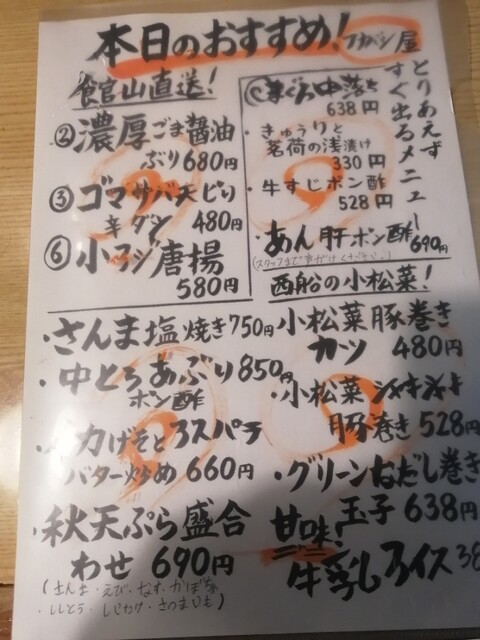 本日のおすすめ!
食官山直送!
②濃厚ごま醤油
ぶり680円
③ゴマサバ天ピリ
辛ダシ 480円
⑥小アジ唐揚
580円
とりあえず
すぐ出るメニュー
①まぐろ中落ち
638円
・きゅうりと
茗荷の浅漬け
330円
・牛すじポン酢
528円
・あん肝ポン酢
690円
西船の小松菜!
・さんま塩焼き750円
・中とろあぶり850円
ポン酢
バター炒め 660円
・秋天ぷら盛合
わせ 690円
(さんま・えび・なす・かぼちゃ
・ししとう・
・さつまいも)
小松菜豚巻き
カツ 480円
・小松菜シャキシャキ
豚巻き528円
・グリーンなだし巻き
玉子 638円
甘味!
牛乳アイス 38